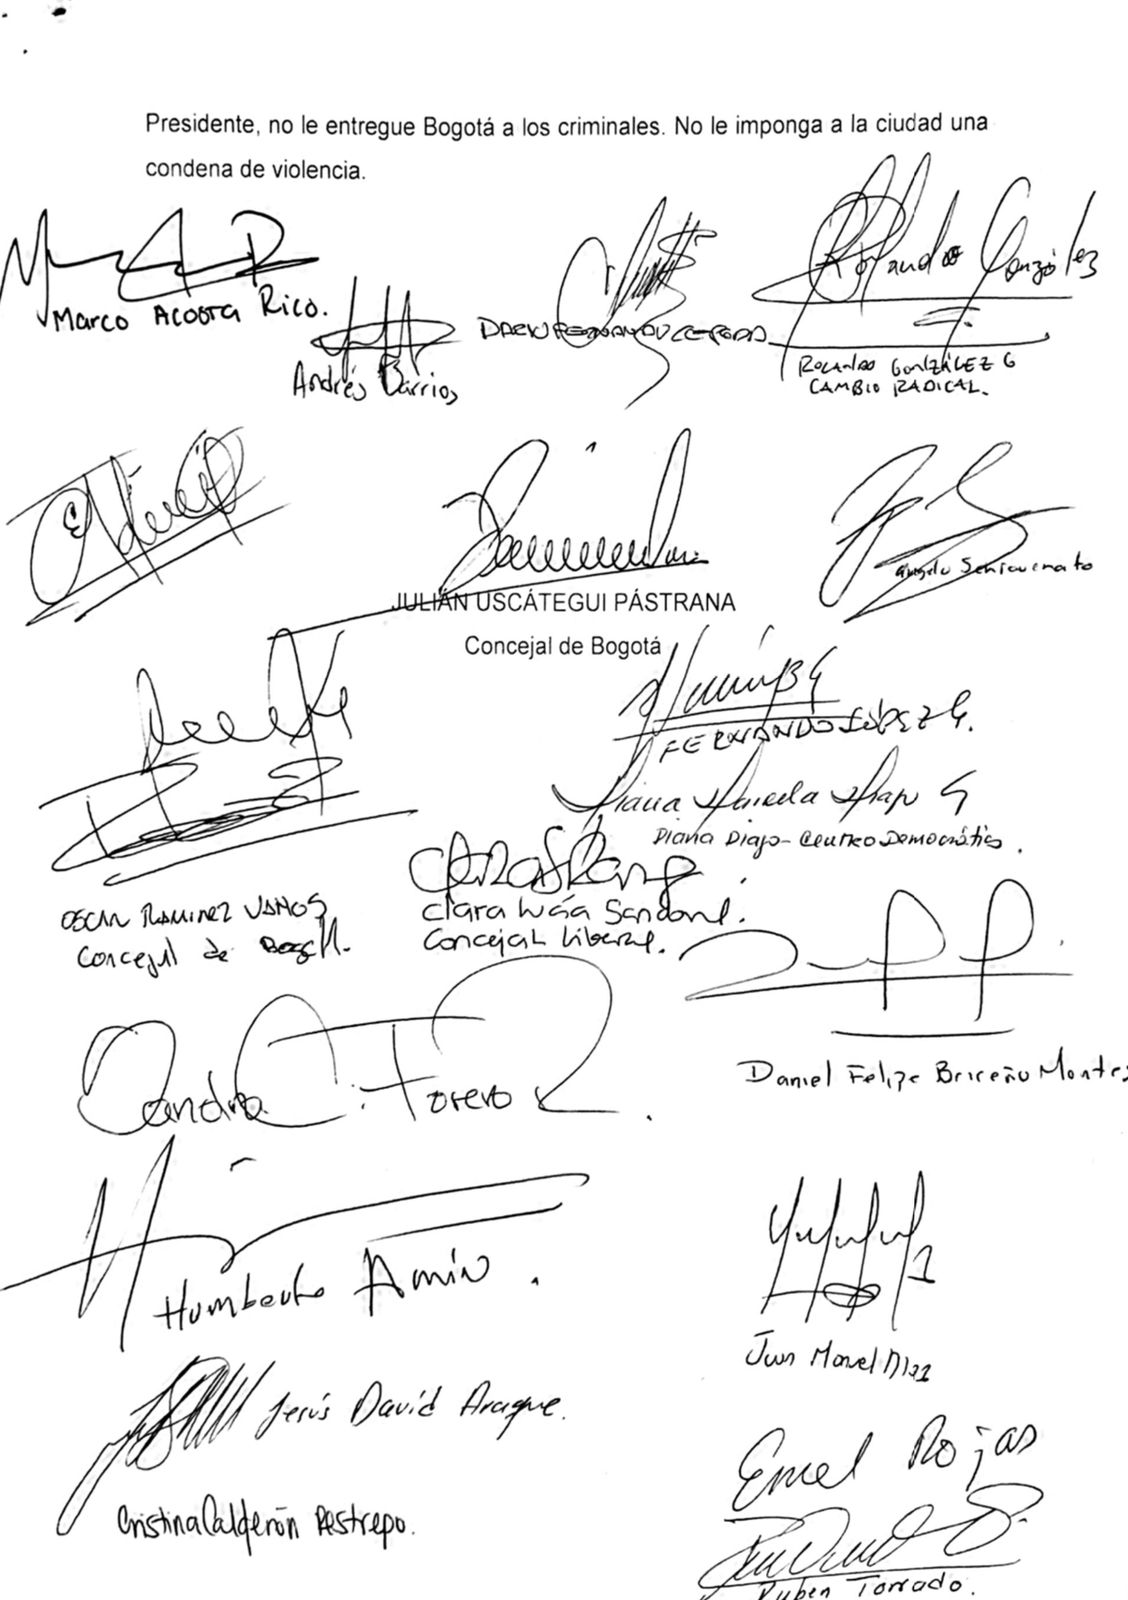 Presidente, no le entregue Bogotá a los criminales. No le imponga a la ciudad una
condena de violencia.
Marco Acosta Rico.
Andrés Barrios
Rolando González
ROLANDO GONZÁLEZ G
CAMBIO RADICAL.
JULIÁN USCÁTEGUI PÁSTRANA
Concejal de Bogotá
FERNANDO LÓPEZ G.
Diana Diago - Centro Democrático.
OSCAR RAMIREZ VAHOS
Concejal de Bogotá.
Clara Lucía Sandoval.
Concejal Liberal.
Daniel Felipe Briceño Montes
Sandra C. Forero R.
Humberto Amín.
Juan Manuel Díaz
Jesús David Araque.
Cristina Calderón Restrepo.
Emel Rojas
Ruben Torrado.